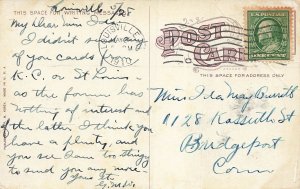 THIS SPACE FOR WRITING
My dear Miss Ida,
I didn't send
of you cards from
K.C. or St Louis
as the former has
nothing of interest and
of the latter I think you
have a plenty, and
you see I am too stingy
to send you any more.
POST
CARD
THIS SPACE FOR ADDRESS ONLY
Miss Ida May
1128 Kossuth St
Bridgeport
Conn